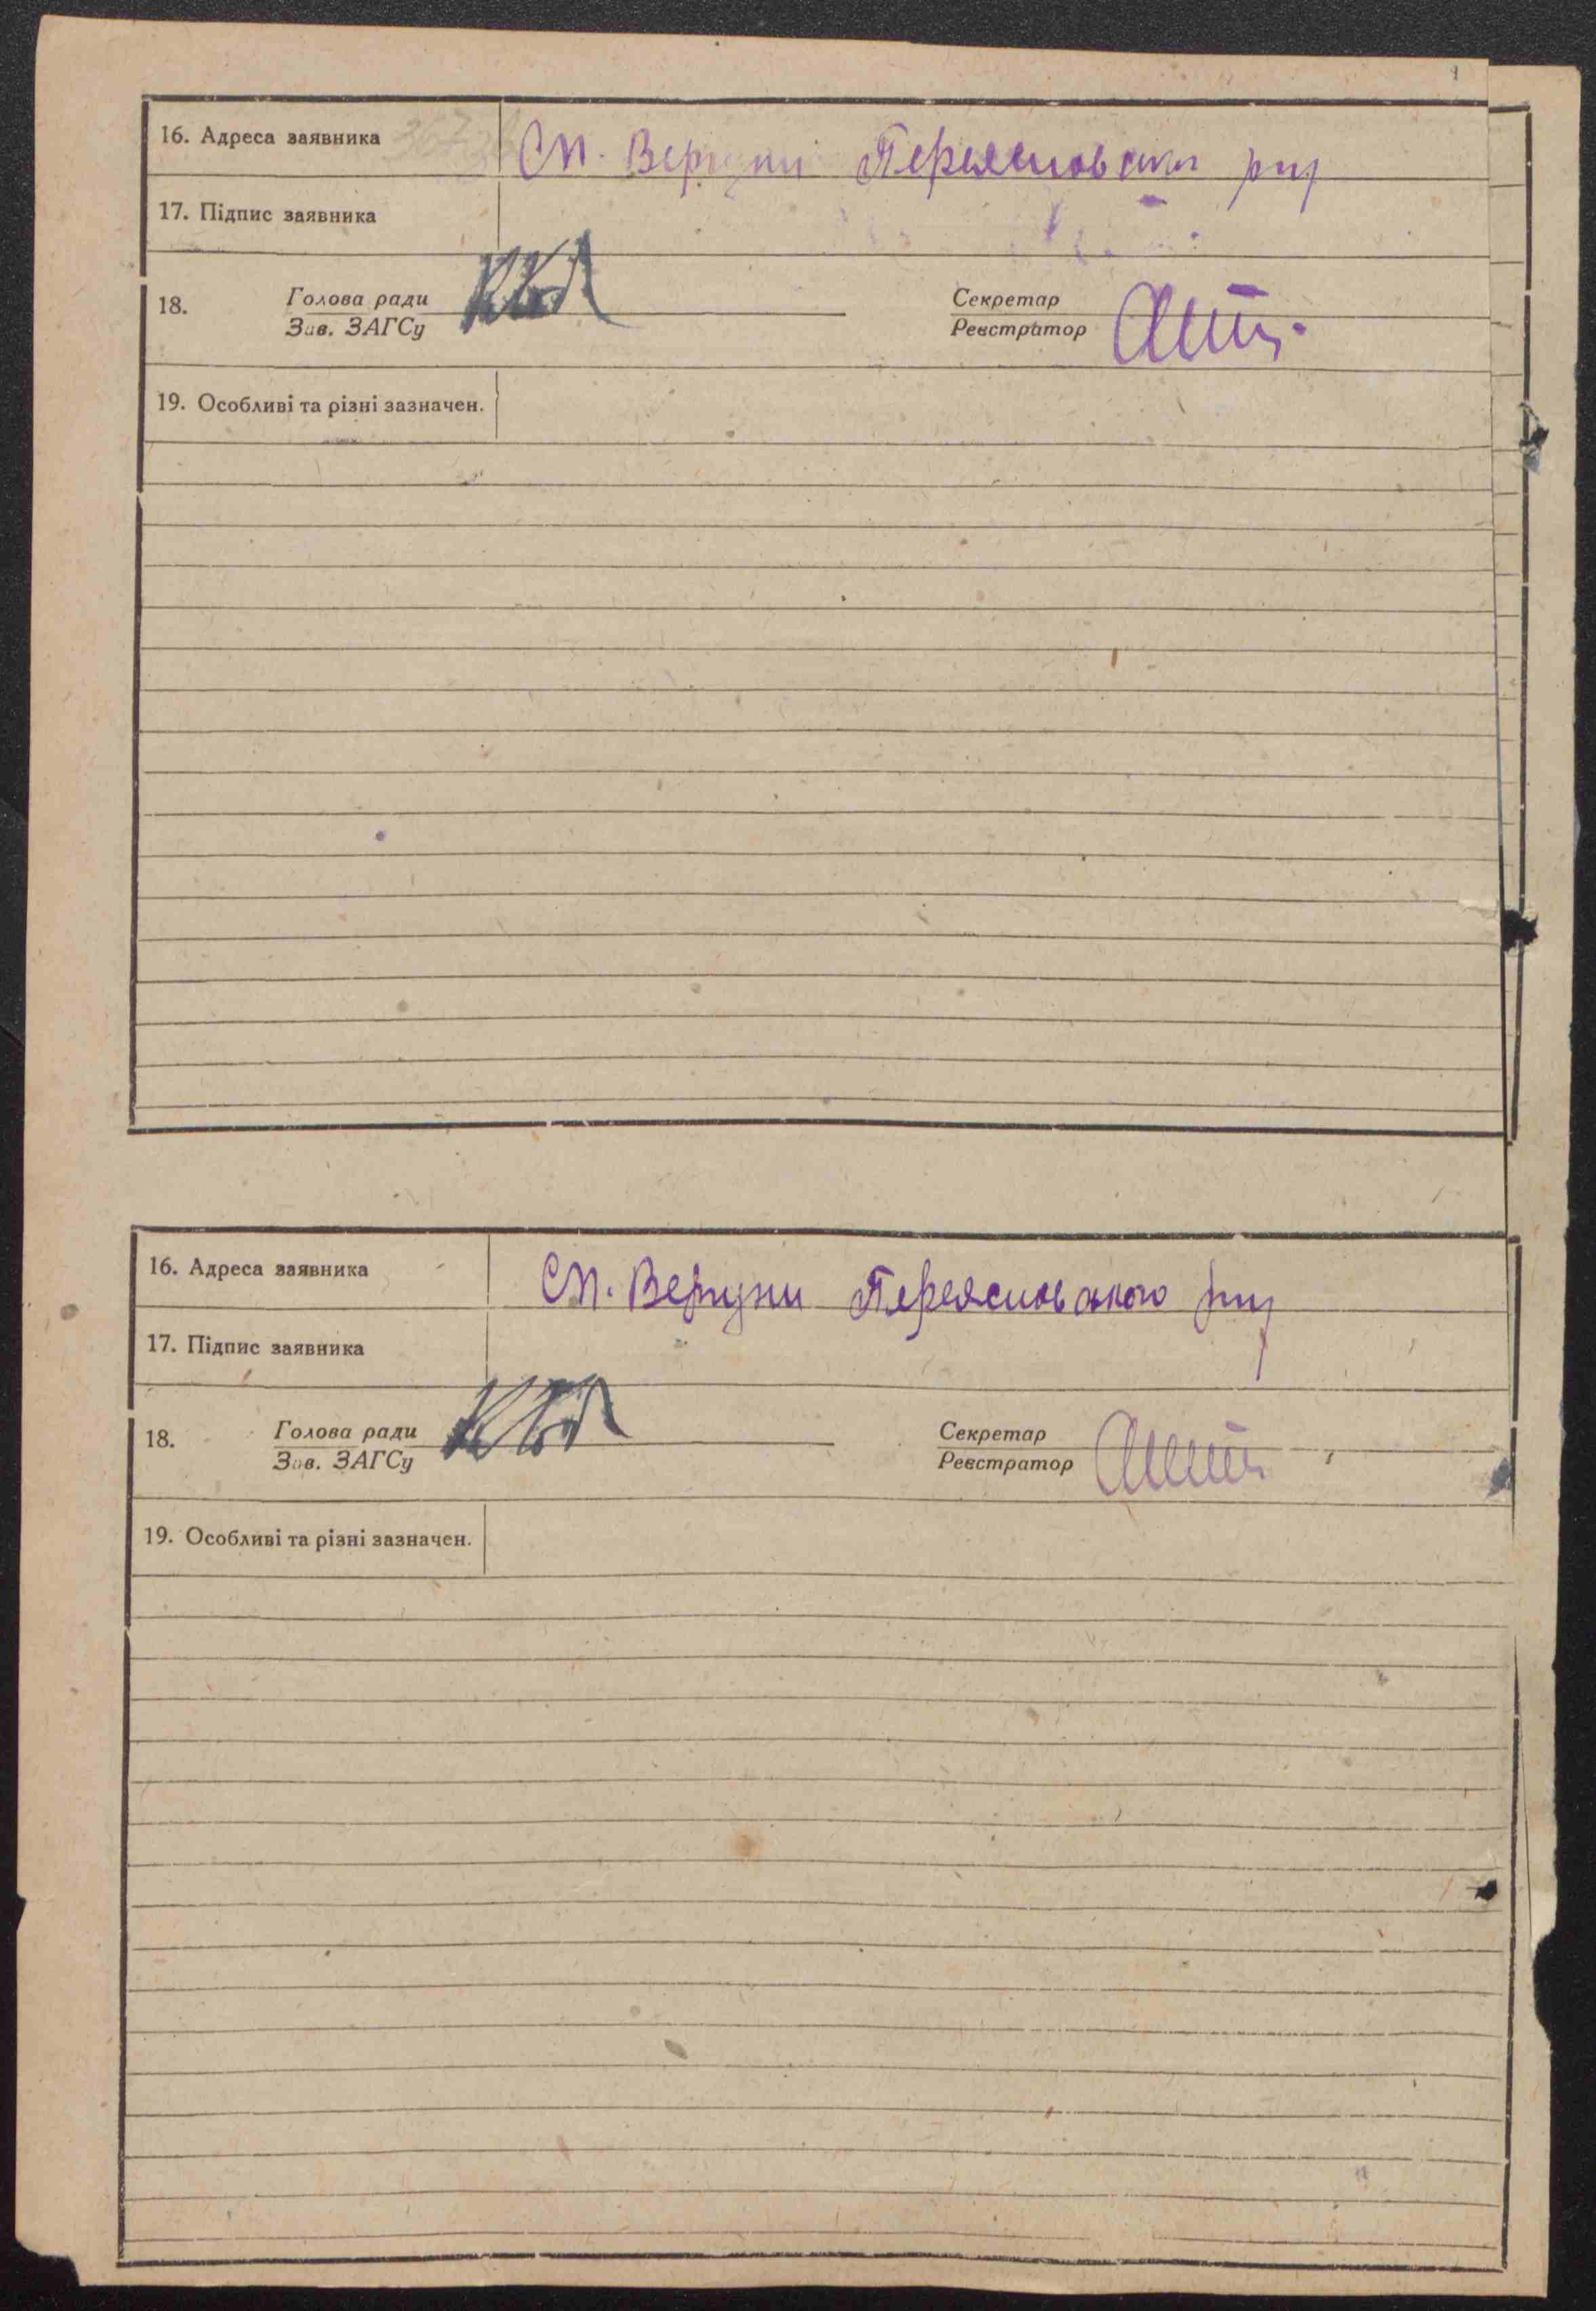 16. Адреса заявника Сп. Вергуни Переяславськ рну
17. Підпис заявника
18. Голова ради Секретар
Зав. ЗАГСу Реєстратор
19. Особливі та різні зазначен.
16. Адреса заявника Сп. Вергуни Переяславського рну
17. Підпис заявника
18. Голова ради Секретар
Зав. ЗАГСу Реєстратор
19. Особливі та різні зазначен.